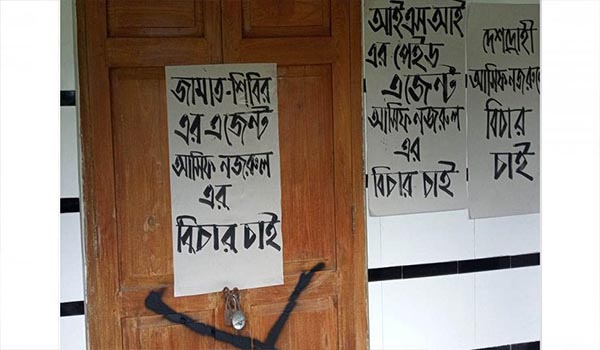 জামাত-শিবির
এর এজেন্ট
আসিফ নজরুল
এর
বিচার চাই
আইএসআই
এর পেইড
এজেন্ট
আসিফ নজরুল
এর
বিচার চাই
দেশদ্রোহী
আসিফ নজরুলে
বিচার
চাই